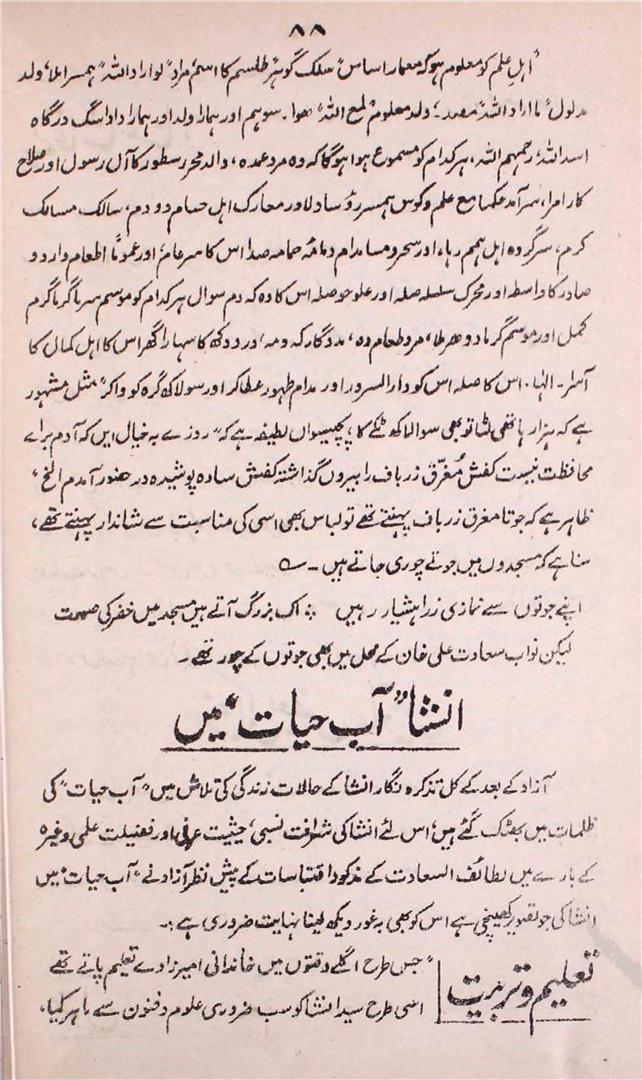 ۸۸
"اہلِ علم کو معلوم ہو کہ معمار اساس سلک گوہر طلسم کا اسم مراد "لو اراد اللہ" ہمسر املا، ولد
مدلول "ما اراد اللہ" مصدر۔ ولد معلوم "لمع اللہ" ہوا۔ سو ہم اور ہمارا ولد اور ہمارا دادا سگ درگاہ
اسد اللہ، رحمہم اللہ، ہر کدام کو مسموع ہوا ہوگا کہ وہ مرد عمدہ، والد محرر سطور کا آل رسول اور صلاح
کار امرا، سرآمد حکما مع علم و کوس ہمسر رؤسا دلاور معارک اہل حسام دودم، سالک مسالک
کرم، سرگروہ اہل ہمم رہا، اور سحر و مسا مدام دمامہ حمامہ صدا اس کا سرِ عام اور عموماً اطعام وارد و
صادر کا واسطہ اور محرک سلسلہ صلہ اور علو حوصلہ اس کا وہ کہ دم سوال ہر کدام کو موسم سرما گرما گرم
کمل اور موسم گرما دو دھر ملا، مرد طعام دہ، مددگار کہ ومہ، درد دکھ کا سہارا گھر اس کا اہل کمال کا
آسرا۔ الہٰا، اس کا صلہ اس کو دار السرور اور مدام طہور عطا کر اور سو لاکھ گرہ کو وا کر" مثل مشہور
ہے کہ ہزار ہاتھی لٹا تو بھی سوا لاکھ ٹکے کا؛ پچیسواں لطیفہ ہے کہ "روزے بہ خیال ایں کہ آدم برائے
محافظت نیست کفش مُغرّق زرباف را بیروں گذاشتہ کفش سادہ پوشیدہ در حضور آمدم الخ"
ظاہر ہے کہ جوتا مغرق زرباف پہنتے تھے تو لباس بھی اسی کی مناسبت سے شاندار پہنتے تھے،
سنا ہے کہ مسجدوں میں جوتے چوری جاتے ہیں۔ ؎
اپنے جوتوں سے نمازی ذرا ہشیار رہیں ؞ اک بزرگ آتے ہیں مسجد میں خضر کی صورت
لیکن نواب سعادت علی خان کے محل میں بھی جوتوں کے چور تھے۔
انشا "آب حیات" میں
آزاد کے بعد کے کل تذکرہ نگار انشا کے حالات زندگی کی تلاش میں "آب حیات" کی
ظلمات میں بھٹک گئے ہیں؛ اس لئے انشا کی شرافت نسبی، حیثیت عرفی اور فضیلت علمی وغیرہ
کے بارے میں لطائف السعادت کے مذکورہ اقتباسات کے پیش نظر آزاد نے "آب حیات" میں
انشا کی جو تصویر کھینچی ہے اس کو بھی بہ غور دیکھ لینا نہایت ضروری ہے :۔
تعلیم و تربیت
"جس طرح اگلے وقتوں میں خاندانی امیر زادے تعلیم پاتے تھے
اسی طرح سید انشا کو سب ضروری علوم و فنون سے ماہر کیا،